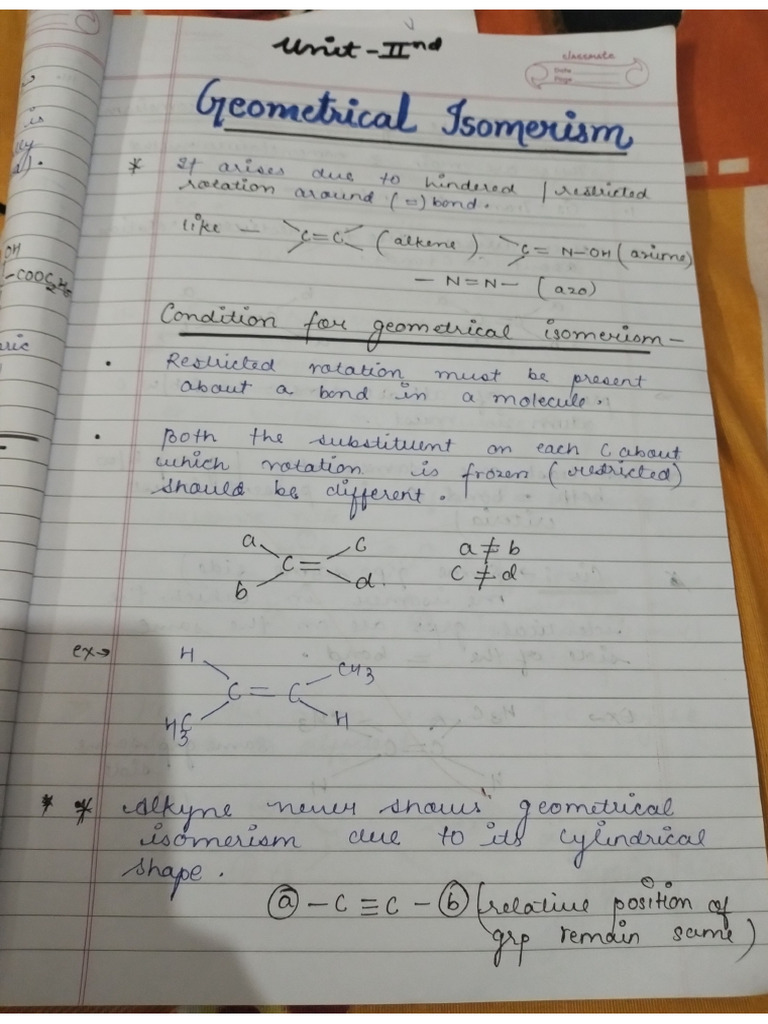 Unit-IInd
classmate
Date
Page
Geometrical Isomerism
* It arises due to hindered / restricted
rotation around (=) bond.
like - C=C (alkene) C=N-OH (oxime)
-N=N- (azo)
Condition for geometrical isomerism-
• Restricted rotation must be present
about a bond in a molecule.
• Both the substituent on each C about
which rotation is frozen (restricted)
should be different.
a c a ≠ b
C=
b d c ≠ d
ex→ H CH3
C=C
H3C H
* * Alkyne never shows geometrical
isomerism due to its cylindrical
shape.
a -C≡C- b (relative position of
grp remain same)
OH
-COOC2H5